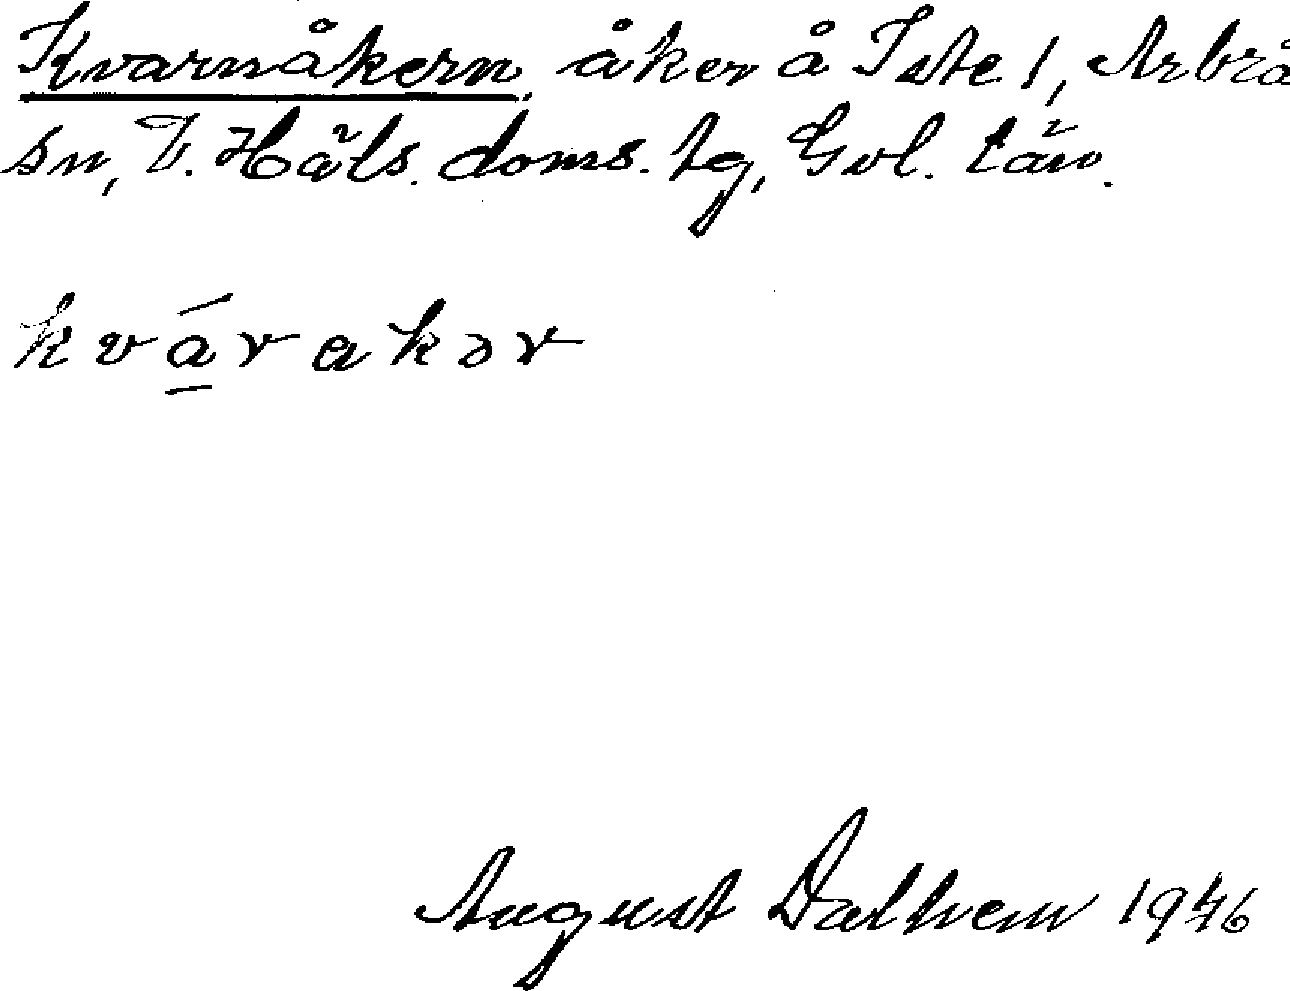 Kvarnåkern, åker å Iste 1, Arbrå
sn, V. Häls. doms. tg, Gvl. län.
kvá̱rakər
August Dalhem 1946